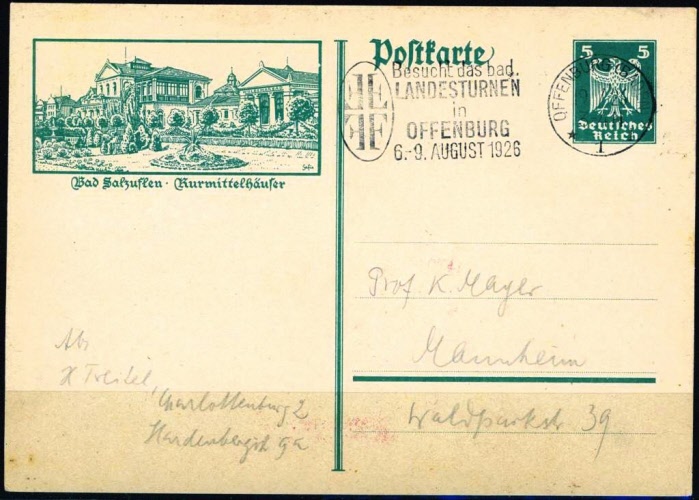 Postkarte
5 5
Deutsches
Reich
OFFENBURG
* 1
Besucht das bad.
LANDESTURNEN
in
OFFENBURG
6.-9. AUGUST 1926
Bad Salzuflen · Kurmittelhäuser
Prof K. Mayer
Mannheim
Waldparkstr 39
Abs
Treitel
Charlottenburg 2
Hardenbergstr 9a